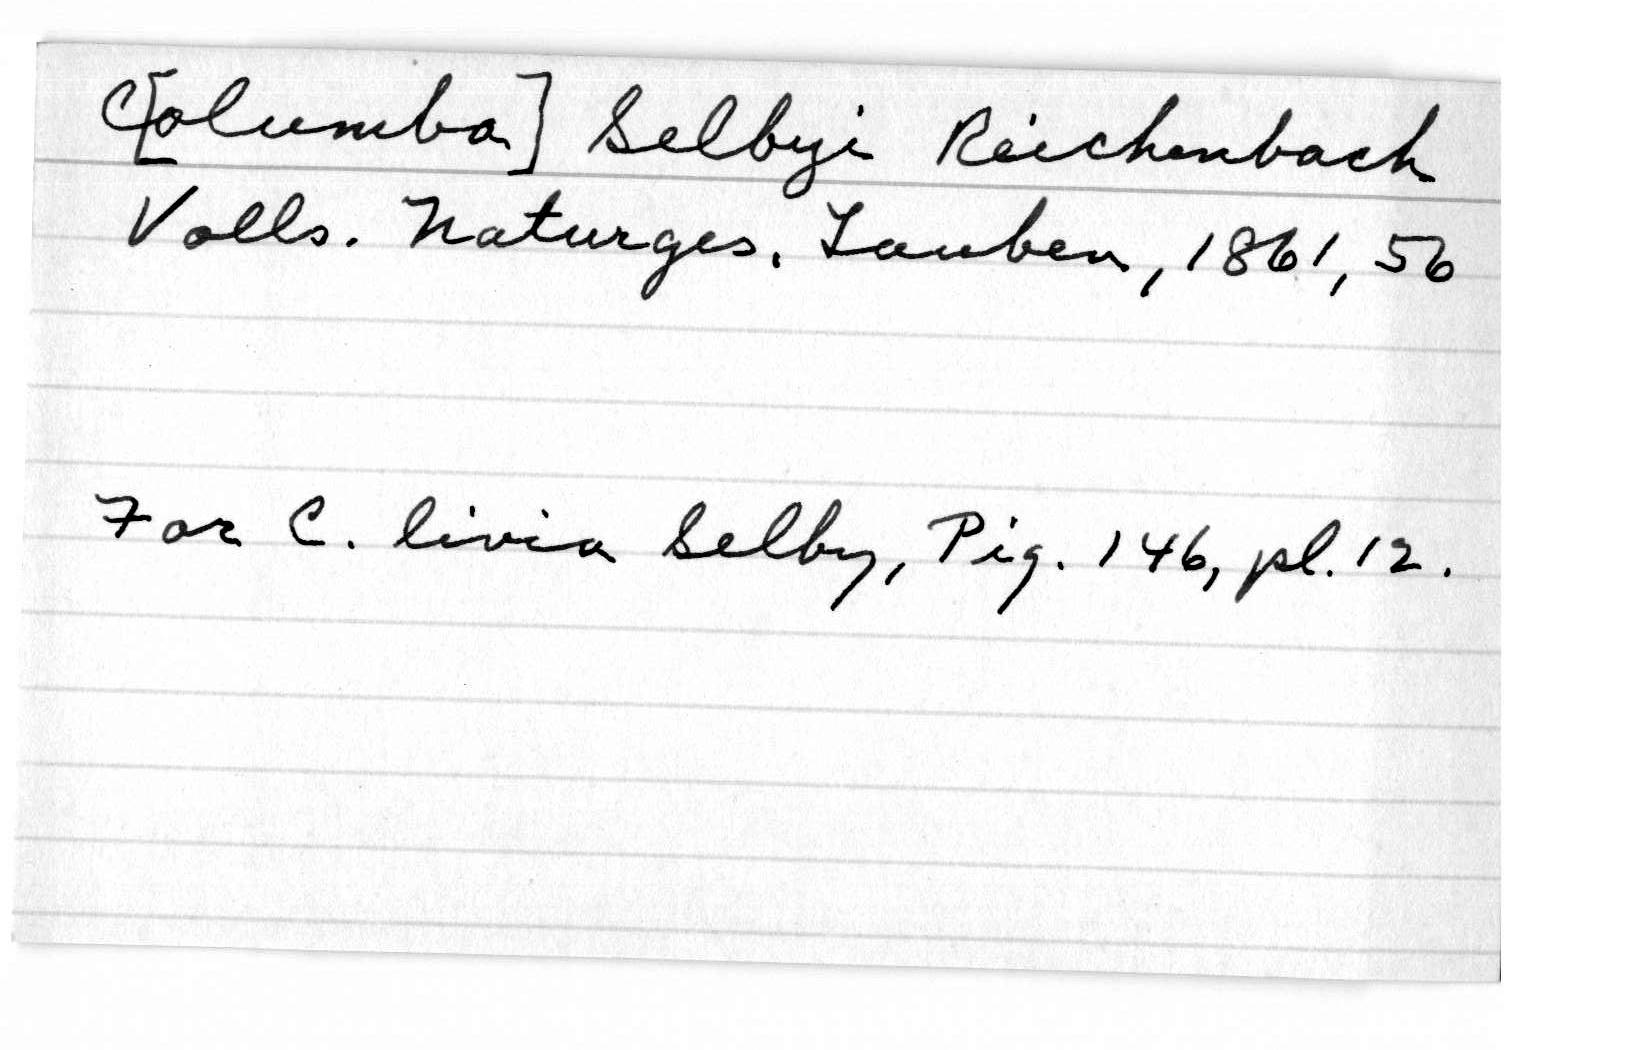 C[olumba] Selbyi Reichenbach
Volls. Naturges. Tauben, 1861, 56
For C. livia Selby, Pig. 146, pl. 12.